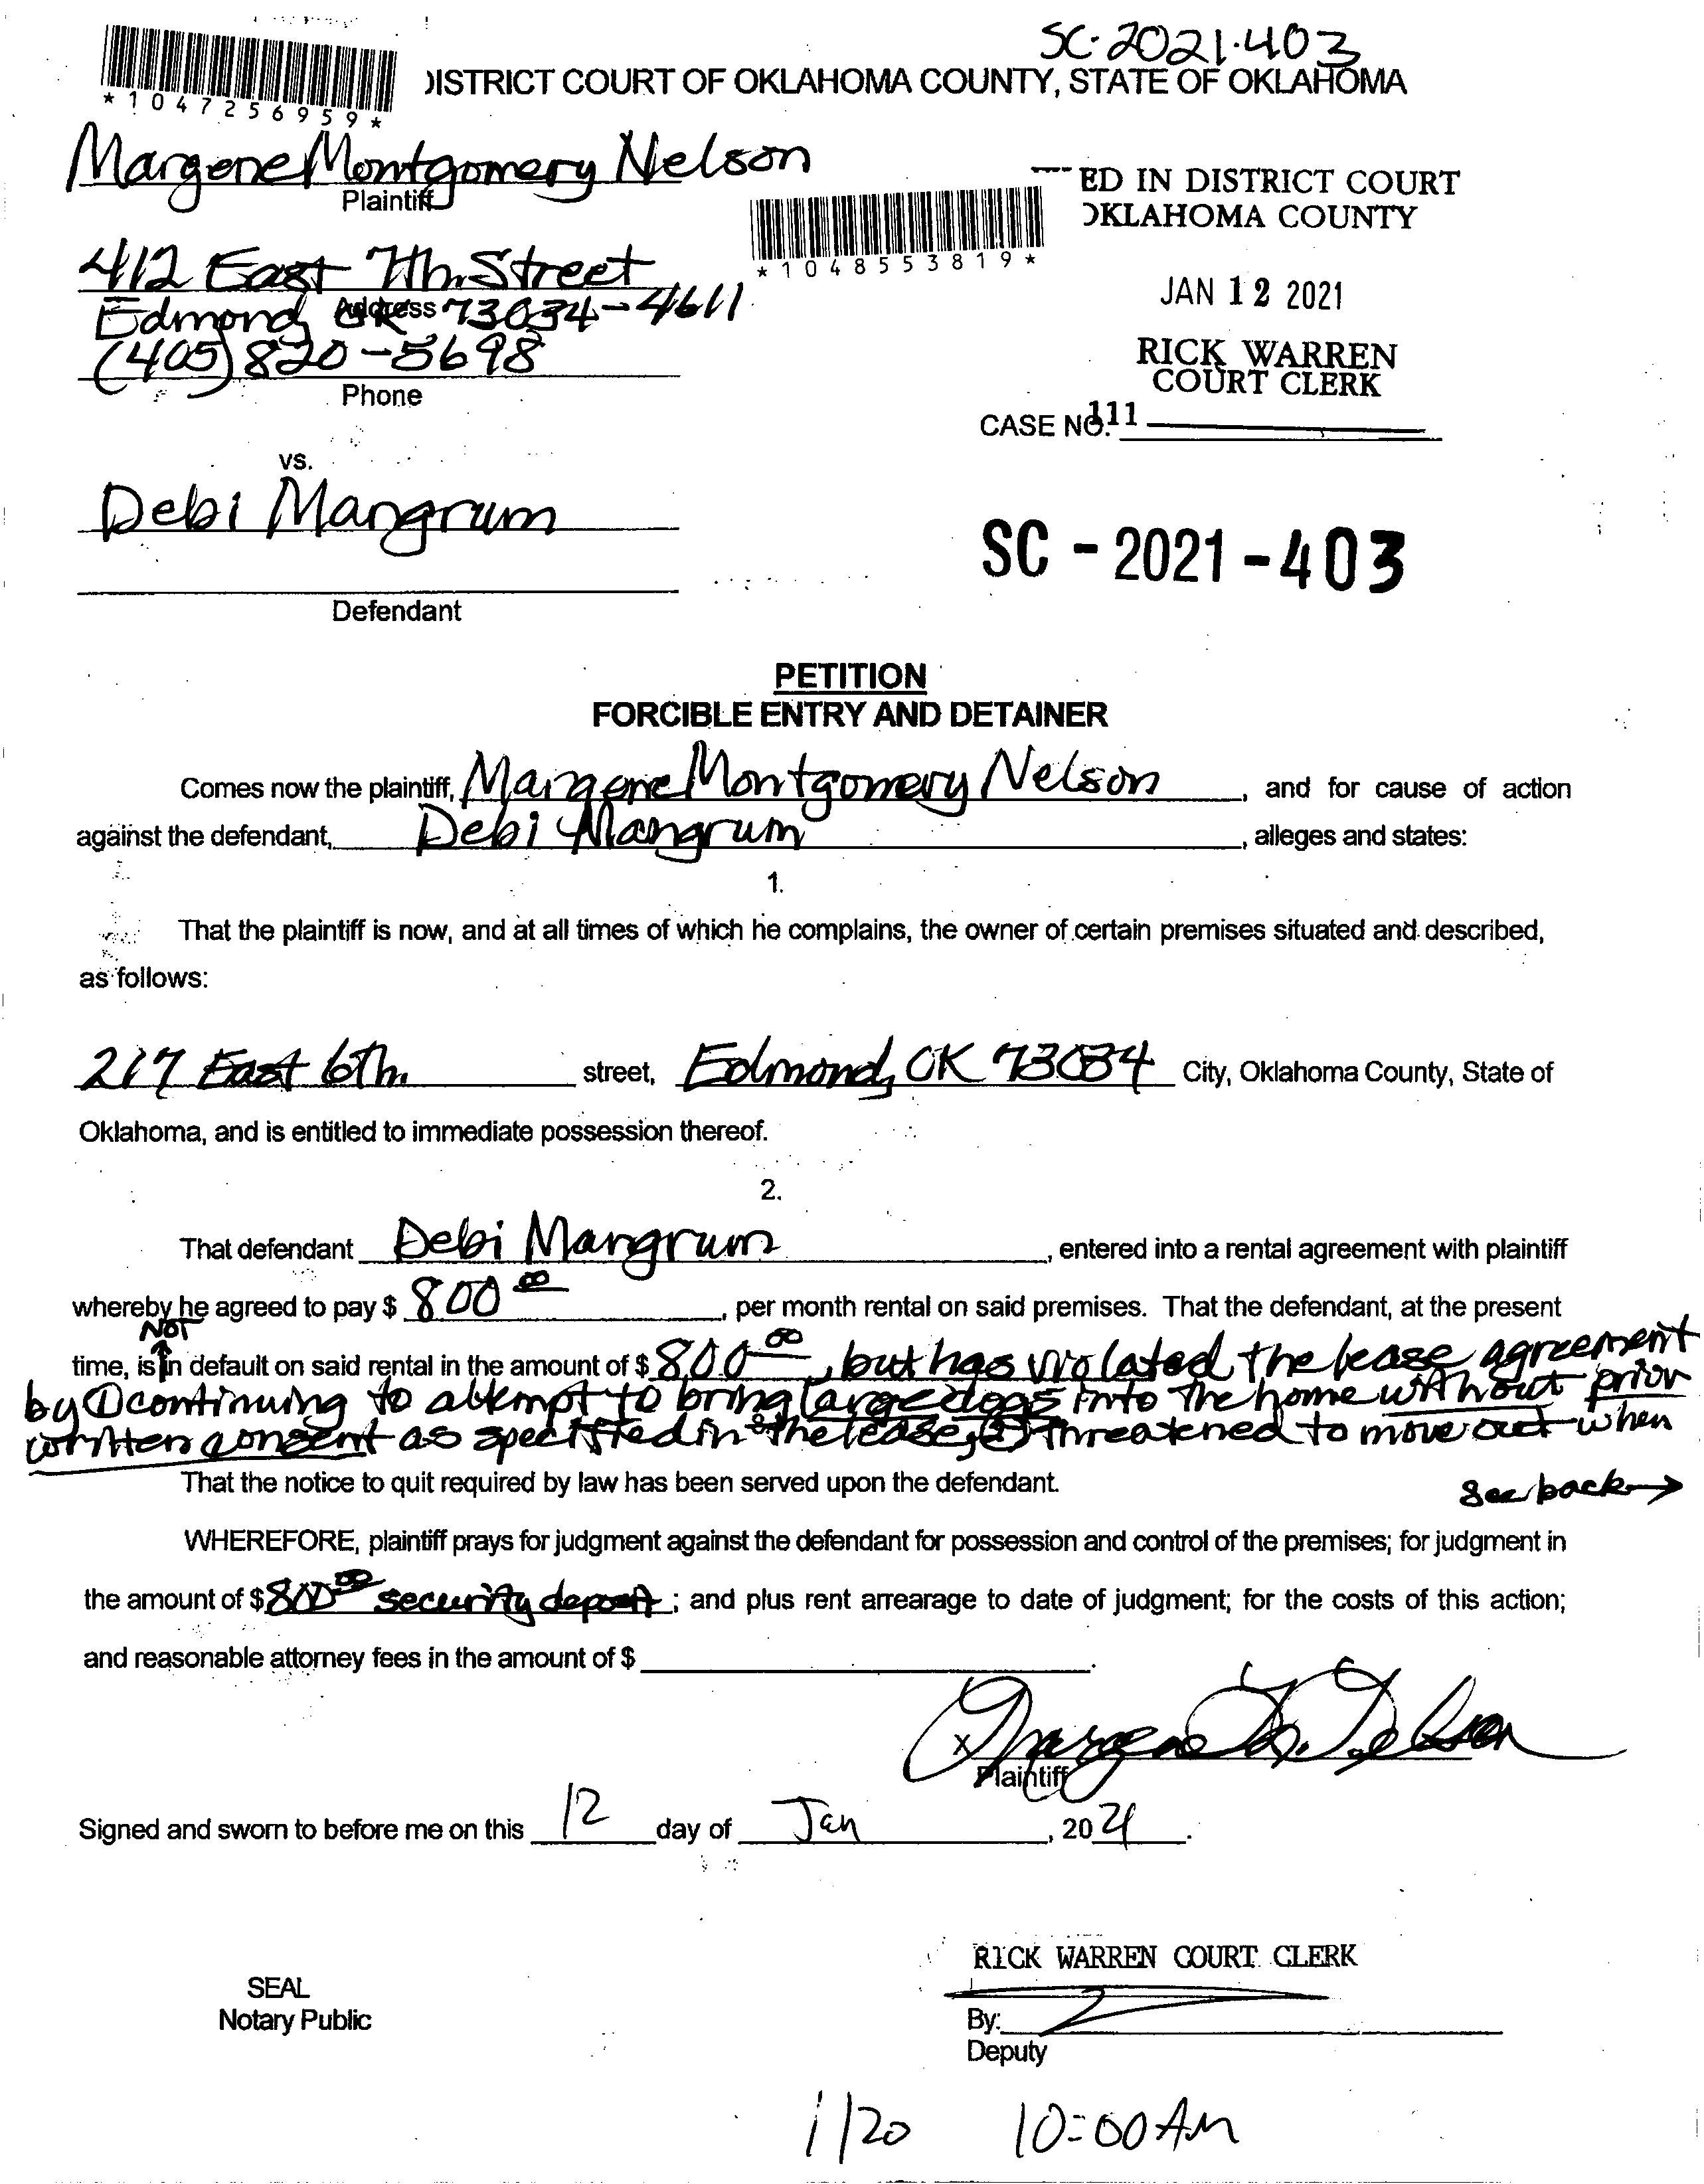 SC-2021-403
DISTRICT COURT OF OKLAHOMA COUNTY, STATE OF OKLAHOMA
*1047256959*
Margene Montgomery Nelson
Plaintiff
ED IN DISTRICT COURT
OKLAHOMA COUNTY
*1048553819*
412 East 7th Street
Address
Edmond, OK 73034-4611
JAN 12 2021
(405) 820-5698
Phone
RICK WARREN
COURT CLERK
CASE NO. 111
vs.
Debi Mangrum
Defendant
SC - 2021 - 403
PETITION
FORCIBLE ENTRY AND DETAINER
Comes now the plaintiff, Margene Montgomery Nelson, and for cause of action
against the defendant, Debi Mangrum, alleges and states:
1.
That the plaintiff is now, and at all times of which he complains, the owner of certain premises situated and described,
as follows:
217 East 6th. street, Edmond, OK 73034 City, Oklahoma County, State of
Oklahoma, and is entitled to immediate possession thereof.
2.
That defendant Debi Mangrum, entered into a rental agreement with plaintiff
whereby he agreed to pay $ 800 00, per month rental on said premises. That the defendant, at the present
NOT
time, is in default on said rental in the amount of $ 800 00, but has violated the lease agreement
by ① continuing to attempt to bring large dogs into the home without prior
written consent as specified in the lease, & ② threatened to move out when
That the notice to quit required by law has been served upon the defendant.
See back →
WHEREFORE, plaintiff prays for judgment against the defendant for possession and control of the premises; for judgment in
the amount of $ 800 00 security deposit; and plus rent arrearage to date of judgment; for the costs of this action;
and reasonable attorney fees in the amount of $
x Margene M. Nelson
Plaintiff
Signed and sworn to before me on this 12 day of Jan, 2021.
RICK WARREN COURT CLERK
SEAL
Notary Public
By:
Deputy
1/20 10:00 AM